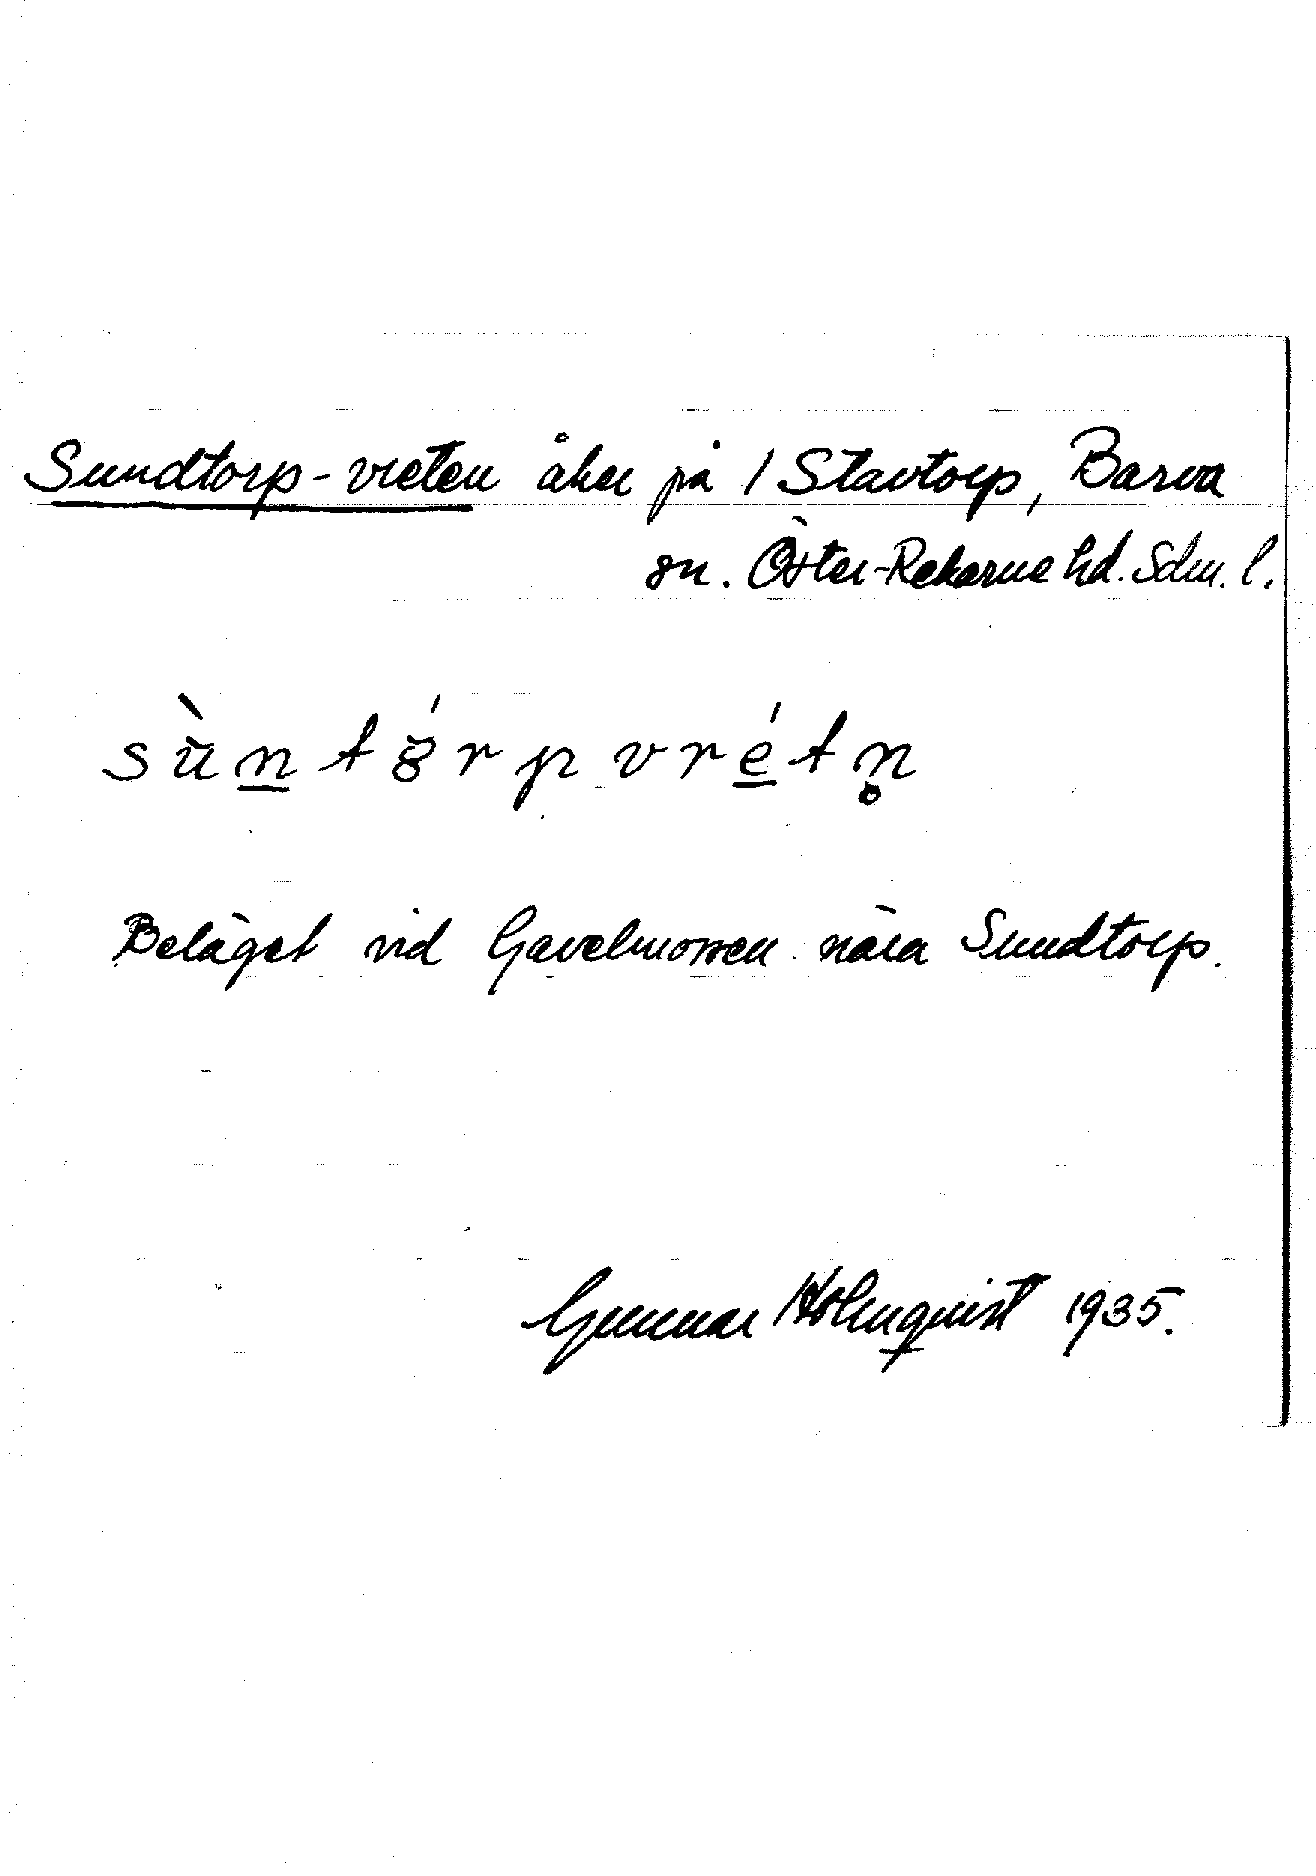 Sundtorp-vreten åker på / Stavtorp, Barva
sn. Öster-Rekarne hd. Sdm. l.
sùn̲tǿrpvré̲tn̥
Beläget vid Gavelmossen nära Sundtorp.
Gunnar Holmquist 1935.